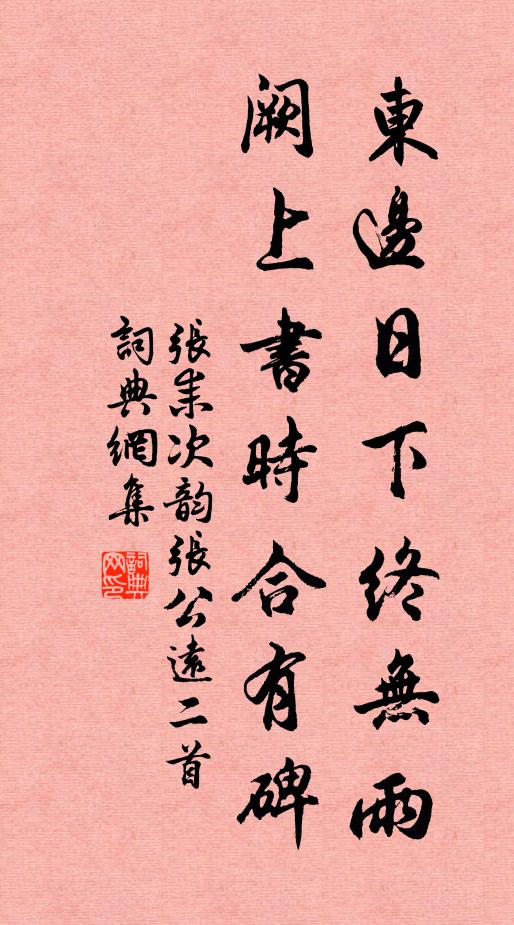 東邊日下終無雨
闕上書時合有碑
張耒次韵張公遠二首
詞典網集
詞典网印